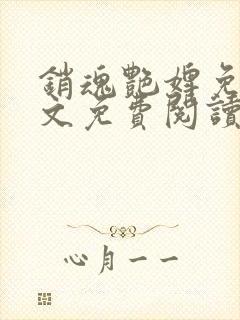 銷魂艷婢免
文免費閱讀
心月一一